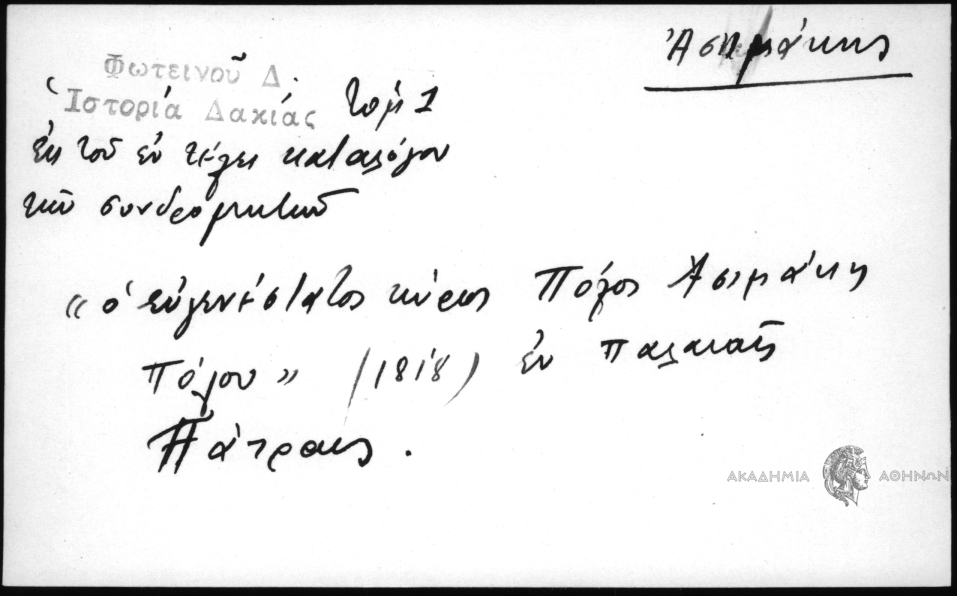 Ἀσημάκης
Φωτεινοῦ Δ.
Ἱστορία Δακίας τομ 1
ἐκ τοῦ ἐν τέλει καταλόγου
τῶν συνδρομητῶν
“ ὁ εὐγενέστατος κύριος Πόλος Ἀσιμάκη
Πόλου „ (1818) ἐν παλαιαῖς
Πάτραις .
ΑΚΑΔΗΜΙΑ ΑΘΗΝΩΝ